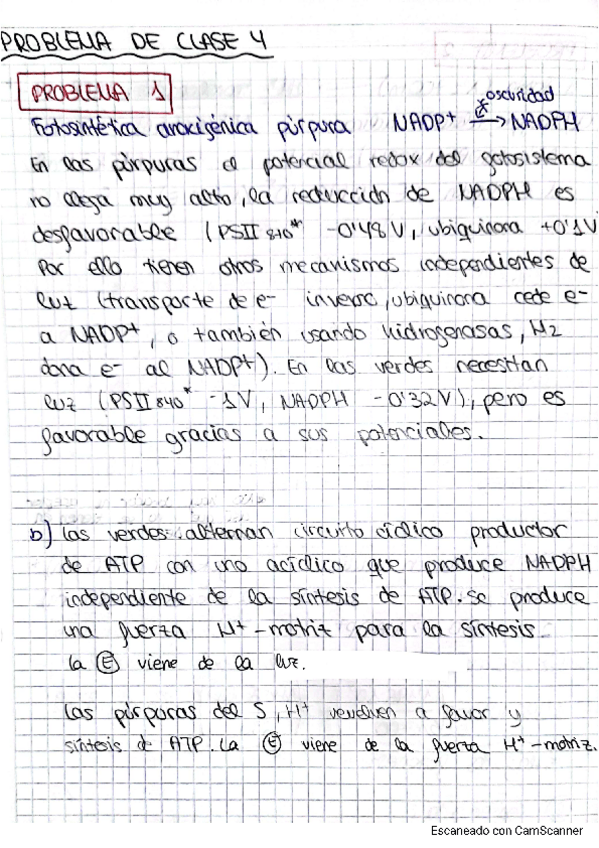 PROBLEMA DE CLASE 4
PROBLEMA 1
oscuridad
Fotosintética anoxigénica púrpura NADP+ → NADPH
En las púrpuras el potencial redox del fotosistema
no llega muy alto, la reducción de NADPH es
desfavorable (PSII 870* -0'48 V, ubiquinona +0'1V
Por ello tienen otros mecanismos independientes de
luz (transporte de e- inverso, ubiquinona cede e-
a NADP+, o también usando hidrogenasas, H2
dona e- al NADP+). En las verdes necesitan
luz (PSII 840* -1V, NADPH -0'32V), pero es
favorable gracias a sus potenciales.
b) Las verdes alternan circuito cíclico productor
de ATP con uno acíclico que produce NADPH
independiente de la síntesis de ATP. Se produce
una fuerza H+-motriz para la síntesis
la E viene de la luz.
Las púrpuras del S, H+ vuelven a favor y
síntesis d ATP. La E viene de la fuerza H+-motriz.
Escaneado con CamScanner